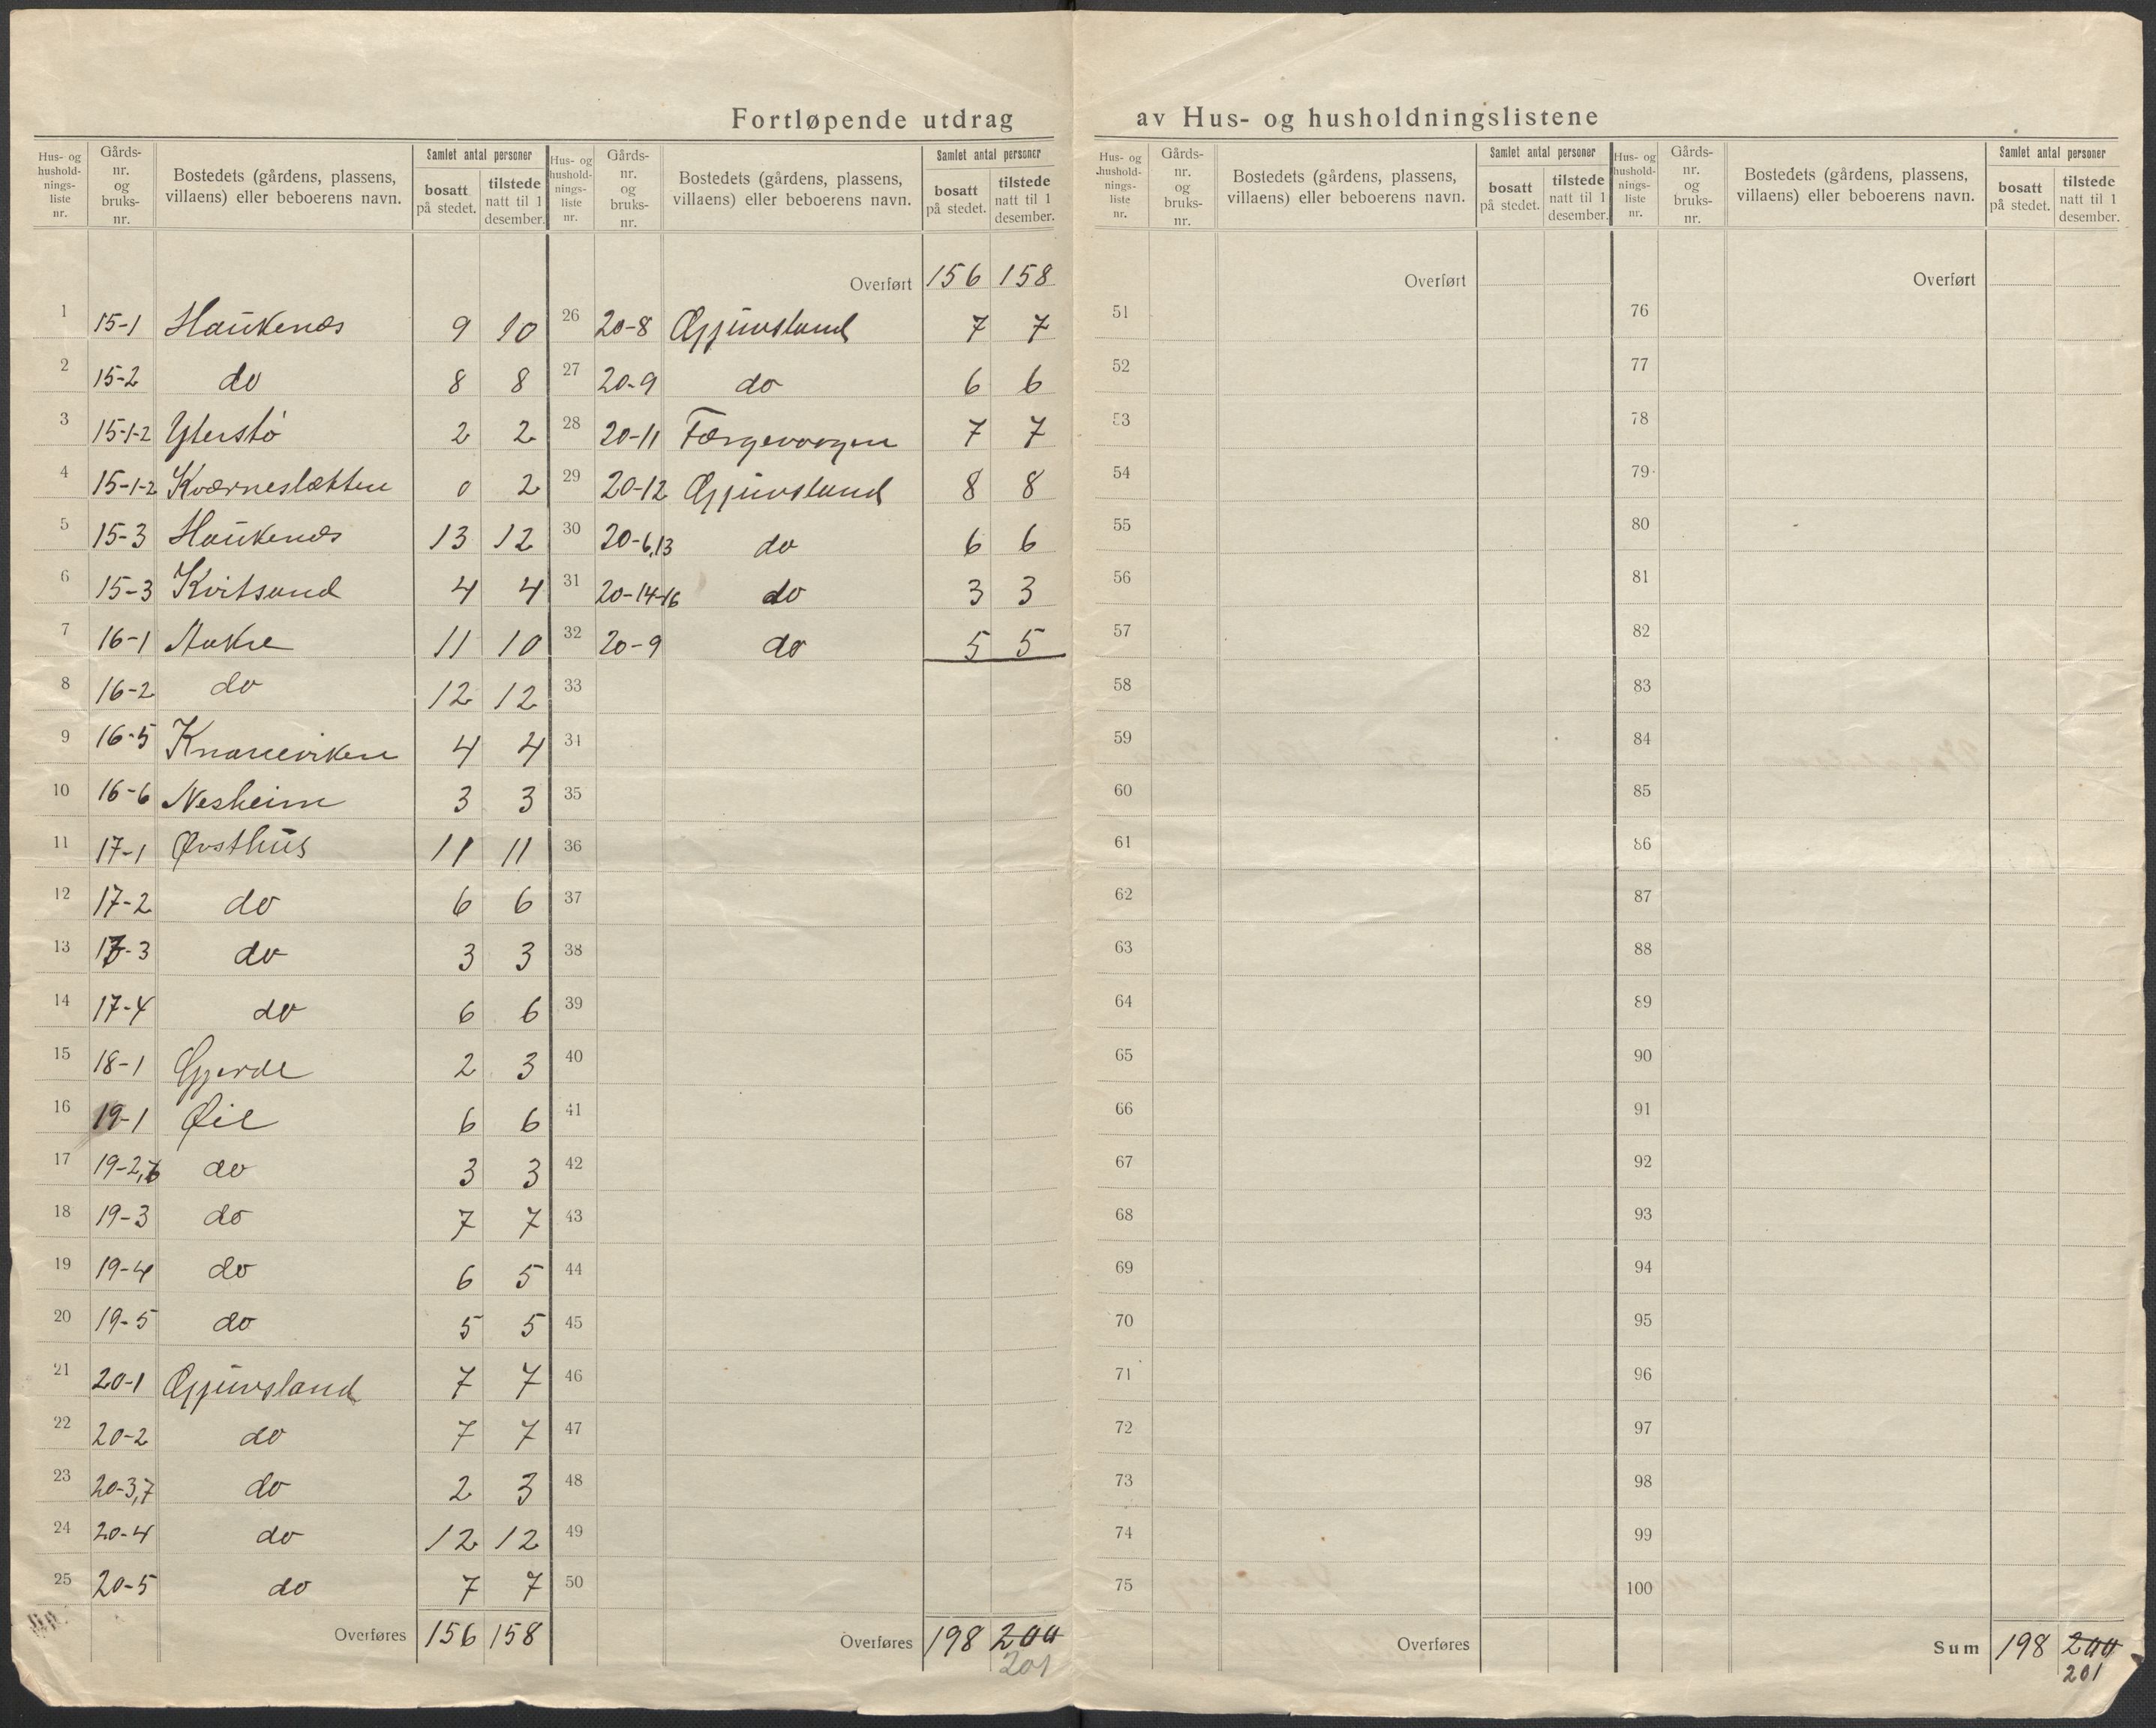 Fortløpende utdrag av Hus- og husholdningslistene
Hus- og hushold- nings- liste nr. Gårds- nr. og bruks- nr. Bostedets (gårdens, plassens, villaens) eller beboerens navn. Samlet antal personer bosatt på stedet. tilstede natt til 1 desember.
1 15-1 Haukenæs 9 10
2 15-2 do 8 8
3 15-1-2 Yterstø 2 2
4 15-1-2 Kværnesletten 0 2
5 15-3 Haukenæs 13 12
6 15-3 Kvitsand 4 4
7 16-1 Aakre 11 10
8 16-2 do 12 12
9 16-5 Knarreviken 4 4
10 16-6 Nesheim 3 3
11 17-1 Øvsthus 11 11
12 17-2 do 6 6
13 17-3 do 3 3
14 17-4 do 6 6
15 18-1 Gjerde 2 3
16 19-1 Øie 6 6
17 19-2,6 do 3 3
18 19-3 do 7 7
19 19-4 do 6 5
20 19-5 do 5 5
21 20-1 Gjuvsland 7 7
22 20-2 do 7 7
23 20-3,7 do 2 3
24 20-4 do 12 12
25 20-5 do 7 7
Overføres 156 158
Hus- og hushold- nings- liste nr. Gårds- nr. og bruks- nr. Bostedets (gårdens, plassens, villaens) eller beboerens navn. Samlet antal personer bosatt på stedet. tilstede natt til 1 desember.
Overført 156 158
26 20-8 Gjuvsland 7 7
27 20-9 do 6 6
28 20-11 Færgevaagen 7 7
29 20-12 Gjuvsland 8 8
30 20-6,13 do 6 6
31 20-14-16 do 3 3
32 20-9 do 5 5
33
34
35
36
37
38
39
40
41
42
43
44
45
46
47
48
49
50
Overføres 198 200
201
Hus- og hushold- nings- liste nr. Gårds- nr. og bruks- nr. Bostedets (gårdens, plassens, villaens) eller beboerens navn. Samlet antal personer bosatt på stedet. tilstede natt til 1 desember.
Overført
51
52
53
54
55
56
57
58
59
60
61
62
63
64
65
66
67
68
69
70
71
72
73
74
75
Overføres
Hus- og hushold- nings- liste nr. Gårds- nr. og bruks- nr. Bostedets (gårdens, plassens, villaens) eller beboerens navn. Samlet antal personer bosatt på stedet. tilstede natt til 1 desember.
Overført
76
77
78
79
80
81
82
83
84
85
86
87
88
89
90
91
92
93
94
95
96
97
98
99
100
Sum 198 200
201